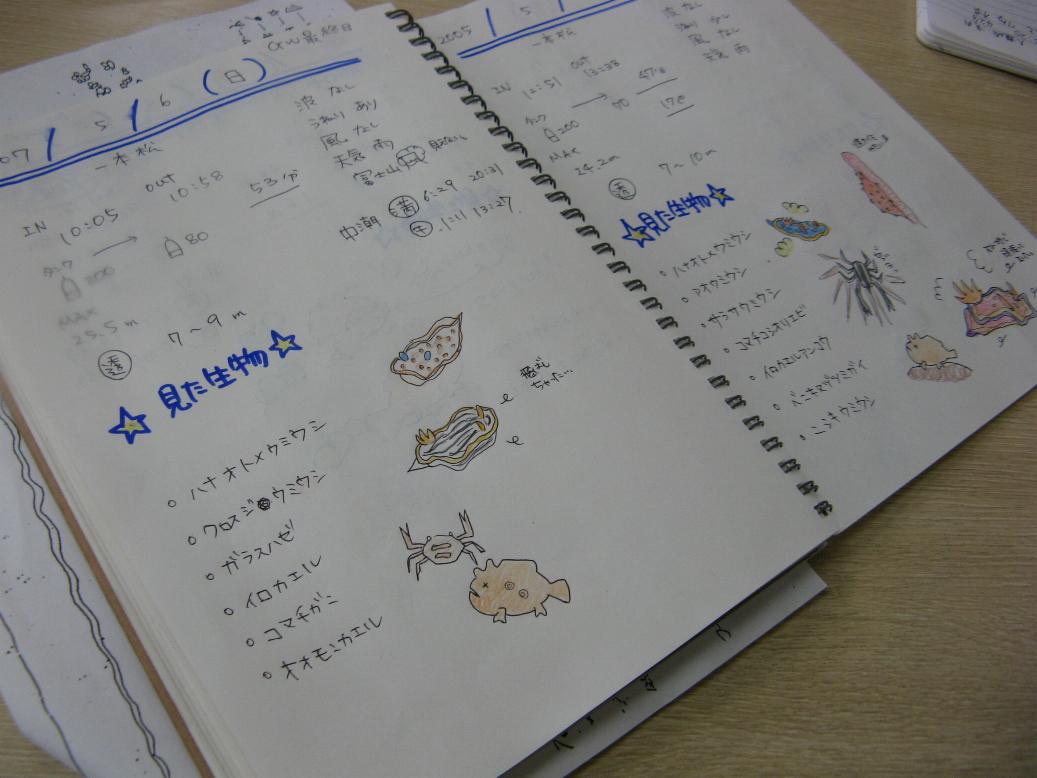 GW最終日
07 / 5 / 6 (日)
一本松
波 なし
うねり あり
風 なし
天気 雨
富士山
IN 10:05
out 10:58
53分
タンク 200
80
MAX 25.5m
透 7〜9m
中潮 満 6:29 20:31
干 1:11 13:27
☆見た生物☆
ハナオトメウミウシ
クロスジウミウシ
ガラスハゼ
イロカエル
コマチガニ
オオモンカエル
ちゃた...
2005 / 5 /
一本松
波 なし
風 なし
天気 雨
IN 12:51
out 13:38
47分
タンク 200
90
17℃
MAX 24.2m
透 7〜10m
☆見た生物☆
ハナオトメウミウシ
アオウミウシ
サラサウミウシ
コマチコシオリエビ
イロカエルアンコウ
ベニキヌヅツミガイ
ニシキウミウシ